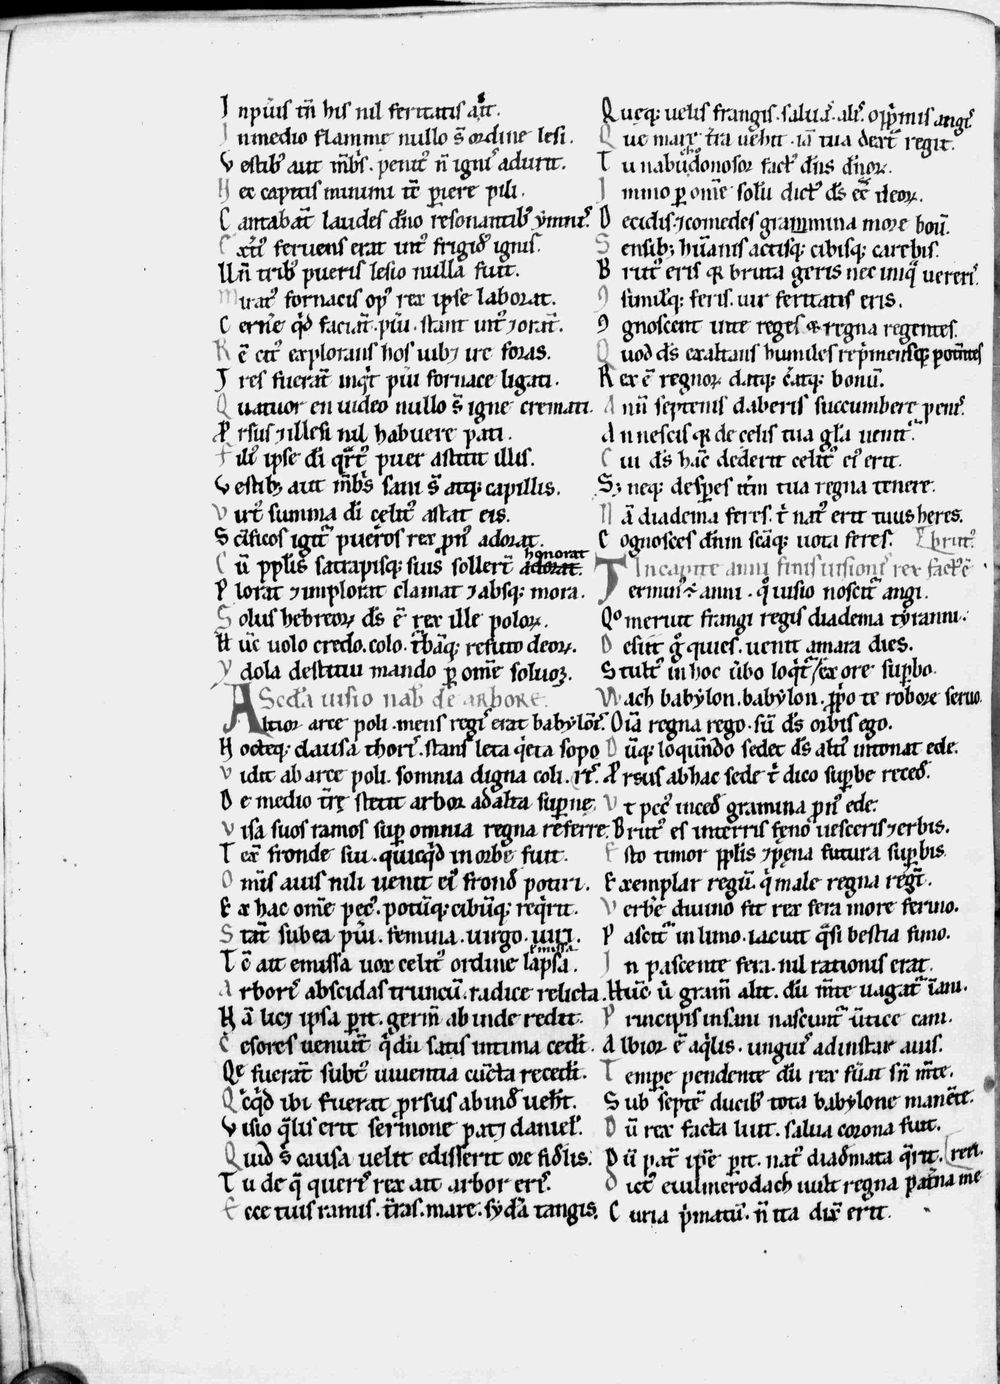 I npuis tn̄ his nil feritatis ait.
I nmedio flamme nullo s; ordine lesi.
V estibꝰ aut mb̄s. penitꝰ n̄ igniˢ adurit.
H ec capitis minimi tē ꝑuere pili.
C antabāt laudes dn̄o resonantibꝰ ymniˢ.
C xt̄i feruens erat intꝰ frigidꝰ ignis.
Un̄ tribꝰ pueris lesio nulla fuit.
M iratꝰ fornacis opꝰ rex ipse laborat.
C erne qd̄ faciāt. puī. stant intꝰ ⁊ orāt.
R ē citꝰ explorans hos iubꝫ ire foras.
T res fuerāt inq̄t pui fornace ligati.
Q uatuor en uideo nullo s̄ igne cremati.
P rsus ⁊ illesi nil habuere pati.
F iliꝰ ipse di q̄rtꝰ puer astitit illis.
V estibꝫ aut mb̄s sani s̄ atqꝫ capillis.
V irtꝰ summa di celitꝰ astat eis.
S cīficos igitᷓ pueros rex pnꝰ adorat.
C ū pplis satrapisqꝫ suis sollert̄ adorat. honorat
P lorat ⁊ implorat clamat ⁊ absqꝫ mora.
S olus hebreoꝝ ds̄ ē rex ille poloꝝ.
H ūc uolo credo. colo. t̄baqꝫ refuto deoꝝ.
Y dola destitui mando ꝑ ome solūoꝝ.
Scd̄a uisio nab̄ de arbore.
A ltior arce poli. mens regiˢ erat babylōiˢ
N octeqꝫ clausa thoriˢ. stans leta q̄eta sopo
V idit ab arce poli. somnia digna coli. (riˢ.
D e medio tr̄e stetit arbor ad alta suꝑne.
V isa suos ramos suꝑ omnia regna referre.
T exᷓ fronde sui. quicq̄d in orbe fuit.
O mīs auis nili uenit eiꝰ frond̄ potiri.
E x hac ome pecꝰ. potūqꝫ cibūqꝫ req̄rit.
S tāt sub ea pūi. femina. uirgo. uiri.
T c̄ ait emissa uox celitꝰ ordine lapsa. emissa
A rboriˢ abscidas truncū. radice relicta.
N ā licꝫ ipsa ꝑit. germ̄ ab inde redit.
C esores uenuīt q̄ dū satis intima cedīt.
Qe fuerāt subtꝰ uiuentia cūcta recedīt.
Q cq̄d ibi fuerat ꝓrsus ab ind̄ ueh̄t.
V isio q̄lis erit sermone patꝫ danieliˢ.
Q uid s̄ causa uelit edisserit ore fid̄lis.
T u de q̄ queriˢ rex ait arbor eriˢ.
E cce tuis ramis. tr̄as. mare. syd̄a tangis.
Q ueqꝫ uelis frangis. saluaˢ. aliˢ. opp̄mis angiˢ
Q ue mare tr̄a uehit. iā tua dextᷓ regit.
T u nabuchodonosor factꝰ dn̄s dn̄oꝝ.
I mmo ꝑ ome solū dictꝰ ds̄ ec̄ deoꝝ.
D ecidis ⁊ comedes grammina more boū.
S ensibꝫ hūanis actisqꝫ cibisqꝫ carebis.
B rutꝰ eris qꝛ bruta geris nec iniqᷓ uereriˢ
Ꝯ similꝫqꝫ feris. uir feritatis eris.
Ꝯ gnoscent in te reges qꝛ regna regentes.
Q uod ds̄ exaltans humiles rep̄mensqꝫ potn̄tes
R ex ē regnoꝝ datqꝫ c̄atqꝫ bonū.
A nni septenis daberis succumbere peniˢ.
A n nescis qꝛ de celis tua gl̄a uenitᷓ.
C ui ds̄ hāc dederit celitꝰ eiꝰ erit.
Sꝫ neqꝫ despes itm̄ tua regna tenere.
N ā diadema feres. t̄ natꝰ erit tuus heres.
C ognosces dn̄m scāqꝫ uota feres. (brutꝰ.
In capite anni finis uisioniˢ rex factꝰ ē
T ermiˢ ē anni. q̄ uisio noscitᷓ angi.
Qo meruit frangi regis diadema tyranni.
D esiit g̊ quies. uenit amara dies.
S tultꝰ in hoc ūbo loq̄tᷓ ex ore suꝑbo.
W ach babylon. babylon. ꝓpo te robore seruo.
Oīa regna rego. sū ds̄ orbis ego.
D ūqꝫ loquēdo sedet ds̄ altiˢ intonat ede.
P rsus ab hac sede t̄ dico suꝑbe reced̄.
V t pecꝰ inced̄ gramina pnꝰ ede.
B rutꝰ es in terris feno uesceris ⁊ erbis.
E sto timor pplis ⁊ pena futura suꝑbis.
E xemplar regū. q̄ male regna regūt.
V erbe diuino fit rex fera more ferino.
P ascitᷓ in limo. iacuit q̄si bestia fimo.
I n pascente fera. nil rationis erat.
Hūc ū gram̄ alit. dū mte uagatᷓ ināi.
P rincipis insani nascuntᷓ ūtice cani.
A lbior ē aq̄lis. unguiˢ ad instar auis.
T empe pendente dū rex fūat sn̄ mte.
S ub septē ducibꝰ tota babylone manēte.
D ū rex facta luit. salua corona fuit.
D ū patᷓ ipe ꝑit. natꝰ diadmata q̄rit. (reri.
D ictꝰ euilmerodach uult regna patna me
C uria p̄matū. n̄ ita dix̄ erit.